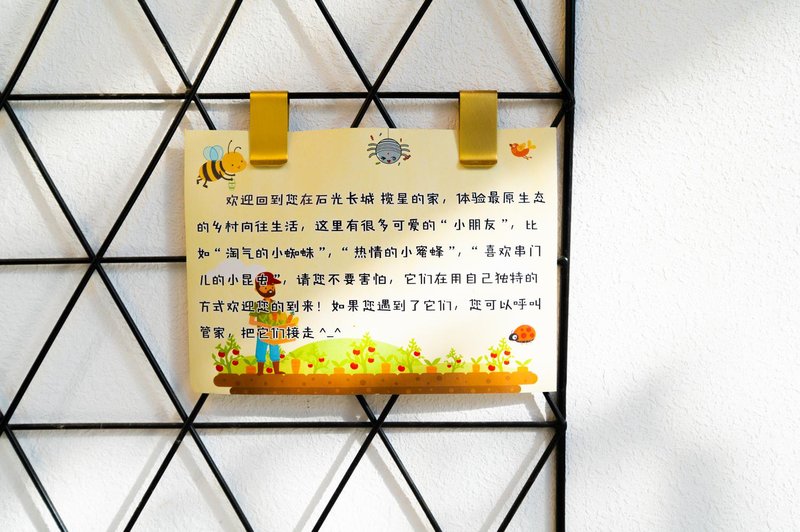 欢迎回到您在石光长城 揽星的家，体验最原生态
的乡村向往生活，这里有很多可爱的“小朋友”，比
如“淘气的小蜘蛛”，“热情的小蜜蜂”，“喜欢串门
儿的小昆虫”，请您不要害怕，它们在用自己独特的
方式欢迎您的到来！如果您遇到了它们，您可以呼叫
管家，把它们接走 ^_^